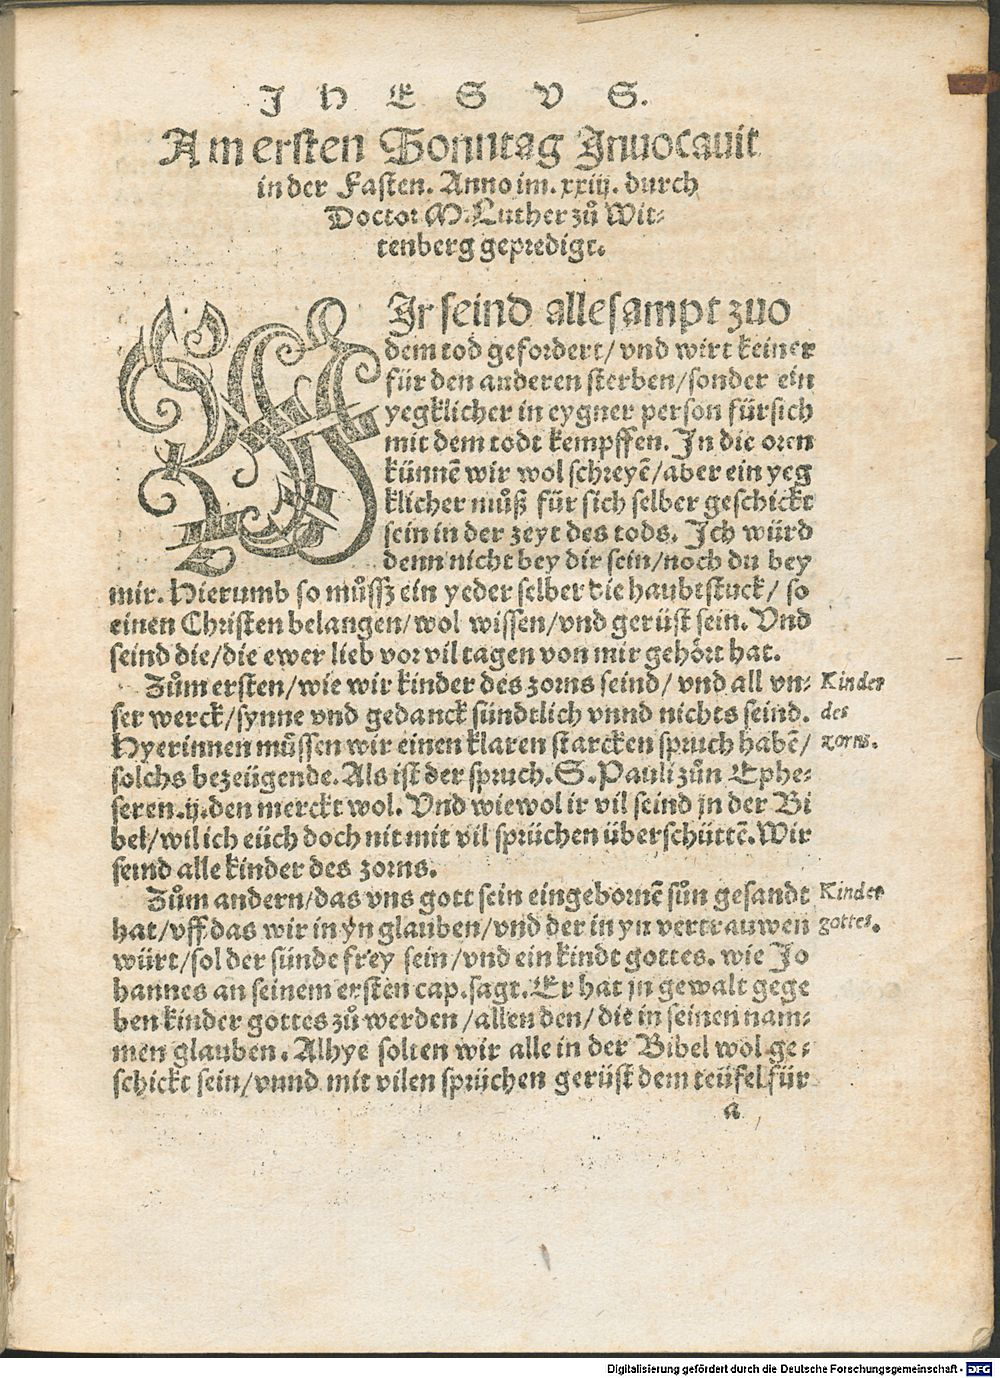 JHESVS.
Am ersten Sonntag Jnuocauit
in der Fasten. Anno im. xxiij. durch
Doctor M. Luther zů Wit⸗
tenberg gepredigt.
WJr seind allesampt zuo
dem tod gefordert/ vnd wirt keiner
für den anderen sterben/sonder ein
yegklicher in eygner person fürsich
mit dem todt kempffen. Jn die oren
künnē wir wol schreyē/aber ein yeg
klicher můß für sich selber geschickt
sein in der zeyt des tods. Jch würd
denn nicht bey dir sein/noch du bey
mir. Hierumb so můssz ein yeder selber die haubtstuck/ so
einen Christen belangen/wol wissen/vnd gerüst sein. Vnd
seind die/die ewer lieb vor vil tagen von mir gehört hat.
Zům ersten/wie wir kinder des zorns seind/ vnd all vn⸗
Kinder
ser werck/synne vnd gedanck sündtlich vnnd nichts seind.
des
Hyerinnen müssen wir einen klaren starcken spruch habē/
zorns.
solchs bezeügende. Als ist der spruch. S. Pauli zůn Ephe⸗
seren .ij. den merckt wol. Vnd wiewol ir vil seind jn der Bi
bel/wil ich eüch doch nit mit vil sprüchen überschüttē. Wir
seind alle kinder des zorns.
Zům andern/das vns gott sein eingebornē sůn gesandt
Kinder
hat/vff das wir in yn glauben/vnd der in yn vertrauwen
gottes.
würt/sol der sünde frey sein/vnd ein kindt gottes. wie Jo
hannes an seinem ersten cap. sagt. Er hat jn gewalt gege
ben kinder gottes zů werden /allen den/ die in seinen nam⸗
men glauben. Alhye solten wir alle in der Bibel wol ge⸗
schickt sein/vnnd mit vilen sprüchen gerüst dem teüfel für
a
Digitalisierung gefördert durch die Deutsche Forschungsgemeinschaft - DFG